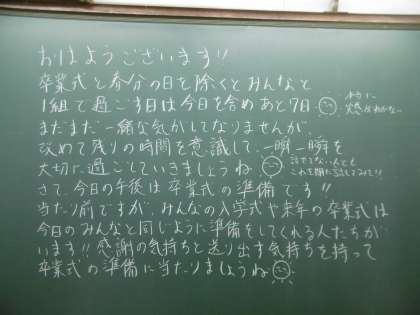 おはようございます!!
卒業式と春分の日を除くとみんなと
1組で過ごす日は今日を含めあと7日
本当に
実感がわかない
まだまだ一緒な気がしてなりませんが、
改めて残りの時間を意識して、一瞬一瞬を
大切に過ごしていきましょうね
話せてない人とも
これを期に話してみて!!
さて、今日の午後は卒業式の準備です!!
当たり前ですが、みんなの入学式や来年の卒業式は
今日のみんなと同じように準備をしてくれる人たちが
います!!感謝の気持ちと送り出す気持ちを持って
卒業式の準備に当たりましょうね